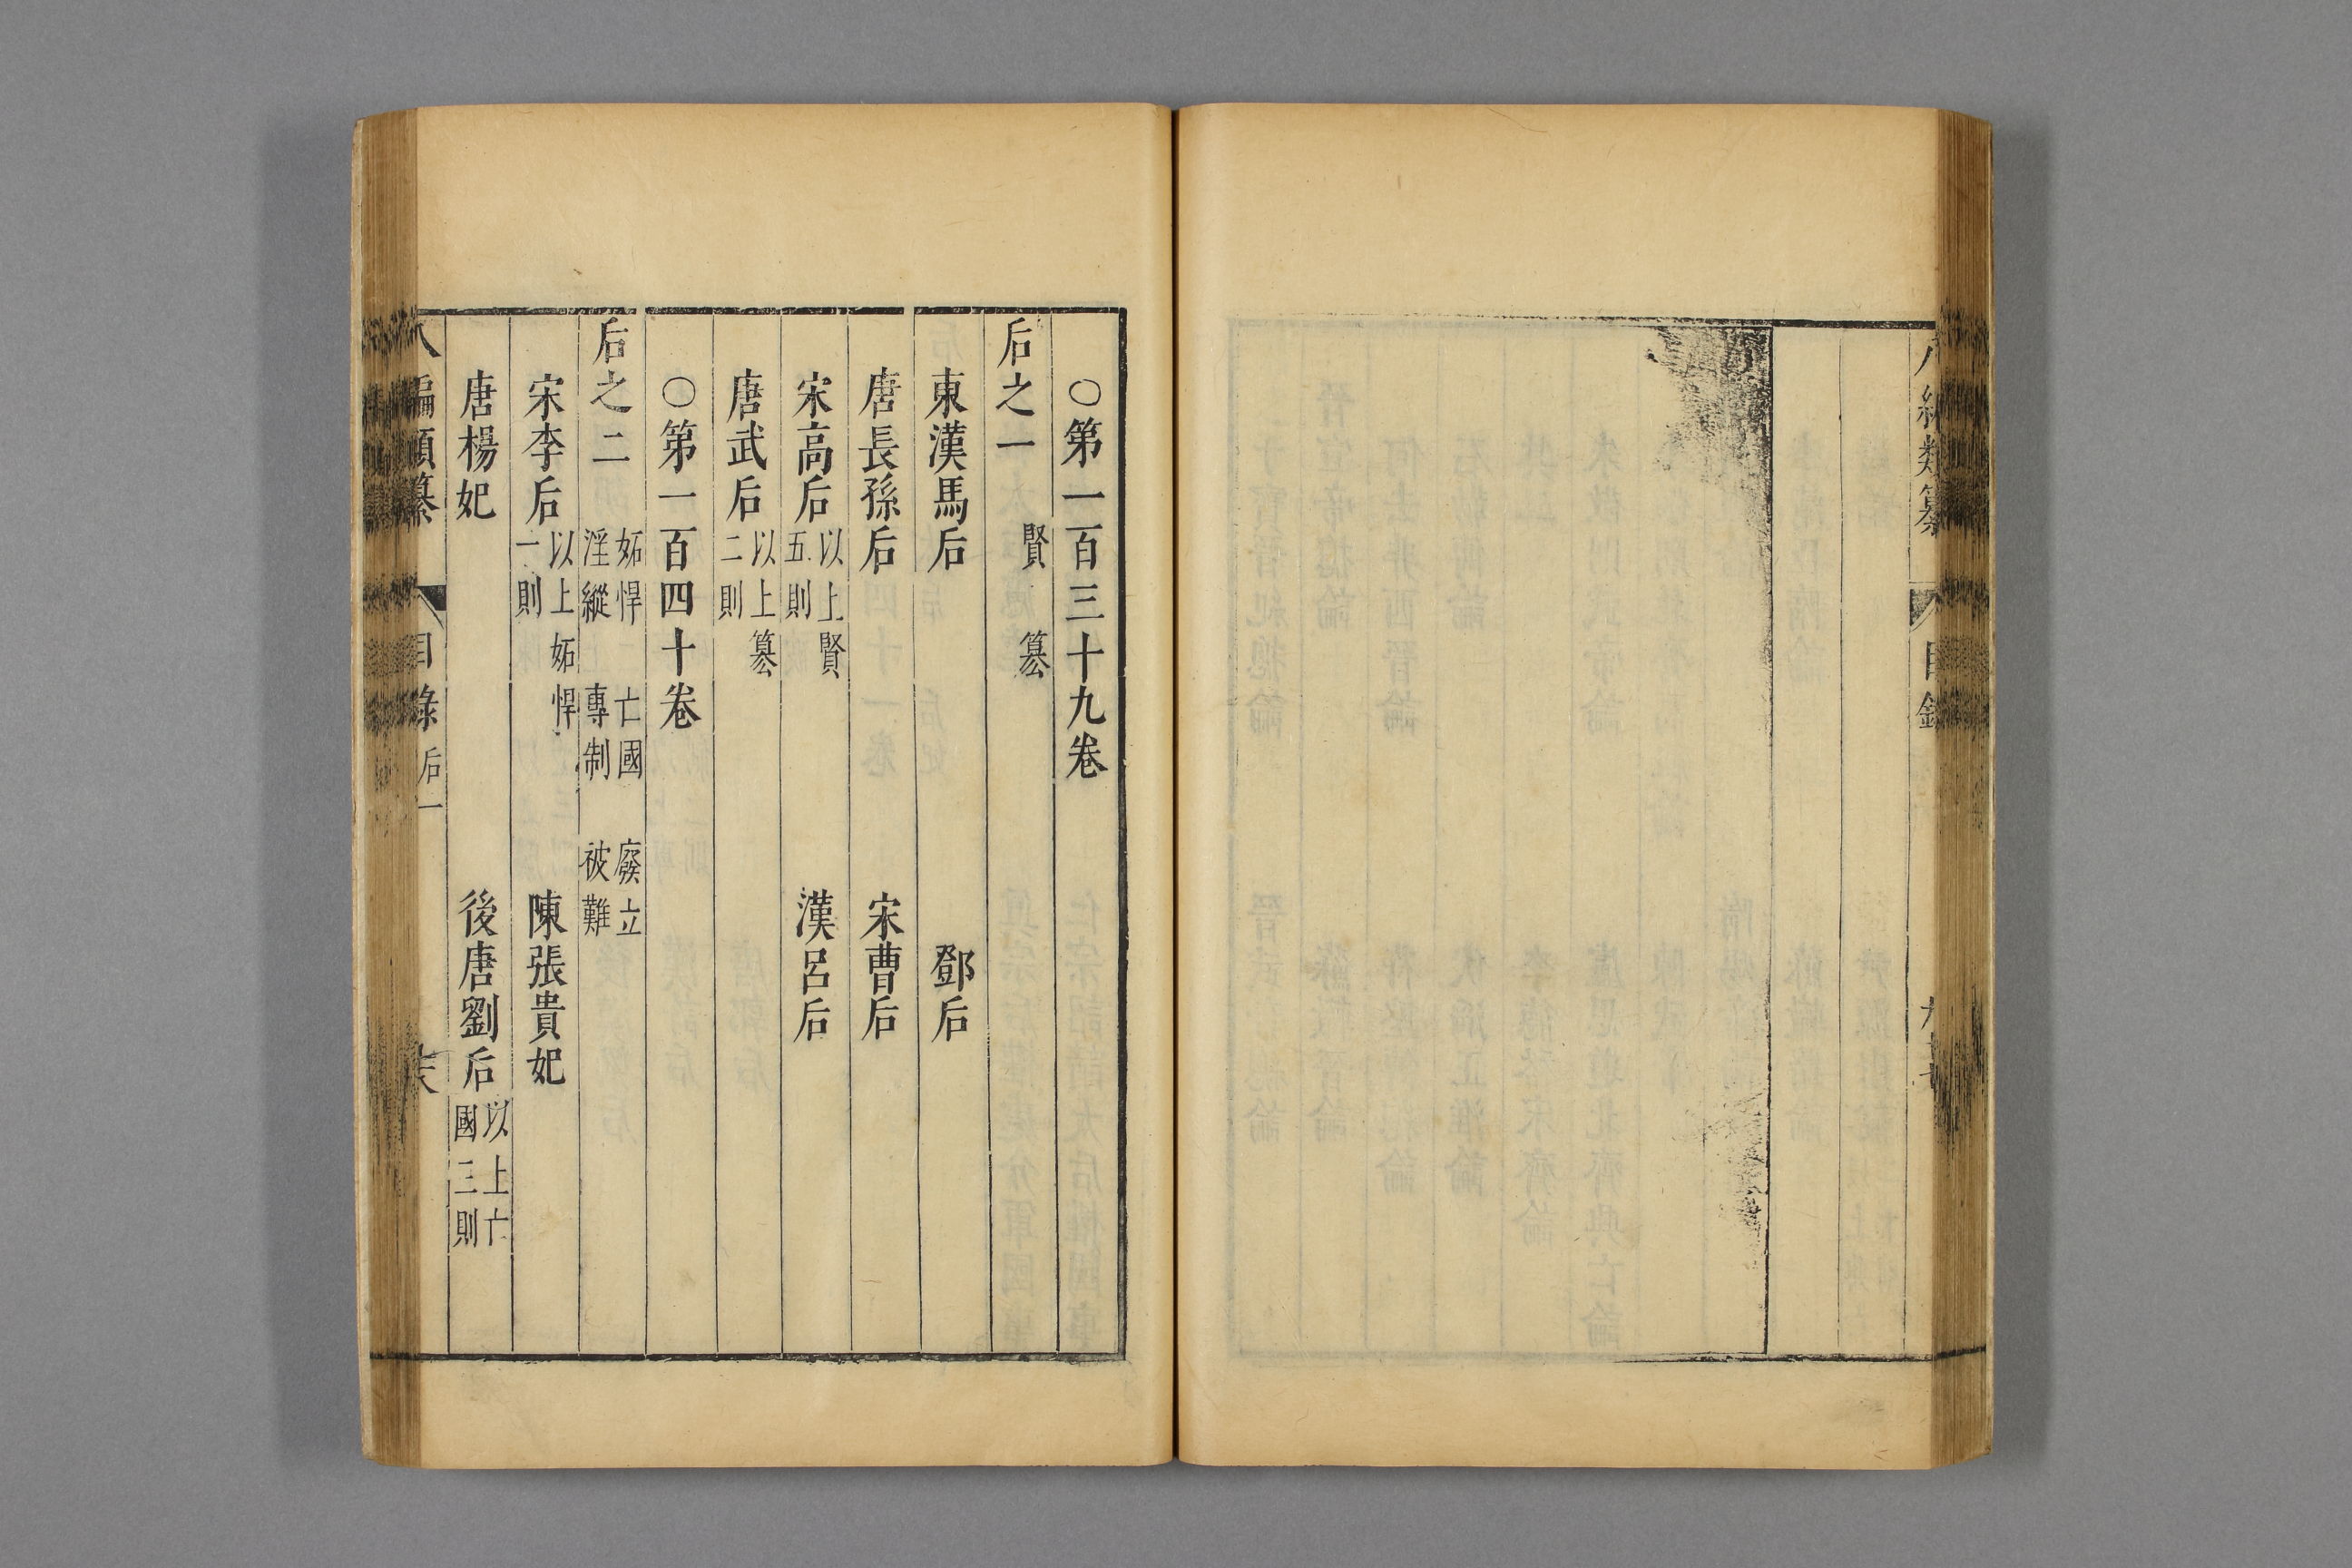 〇第一百三十九卷
后之一　賢　簒
東漢馬后　鄧后
唐長孫后　宋曹后
宋高后以上賢五則　漢呂后
唐武后以上簒二則
〇第一百四十卷
后之二　妬悍　亡國　廢立　淫縱　專制　被難
宋李后以上妬悍一則　陳張貴妃
唐楊妃　後唐劉后以上亡國三則
目錄　后一